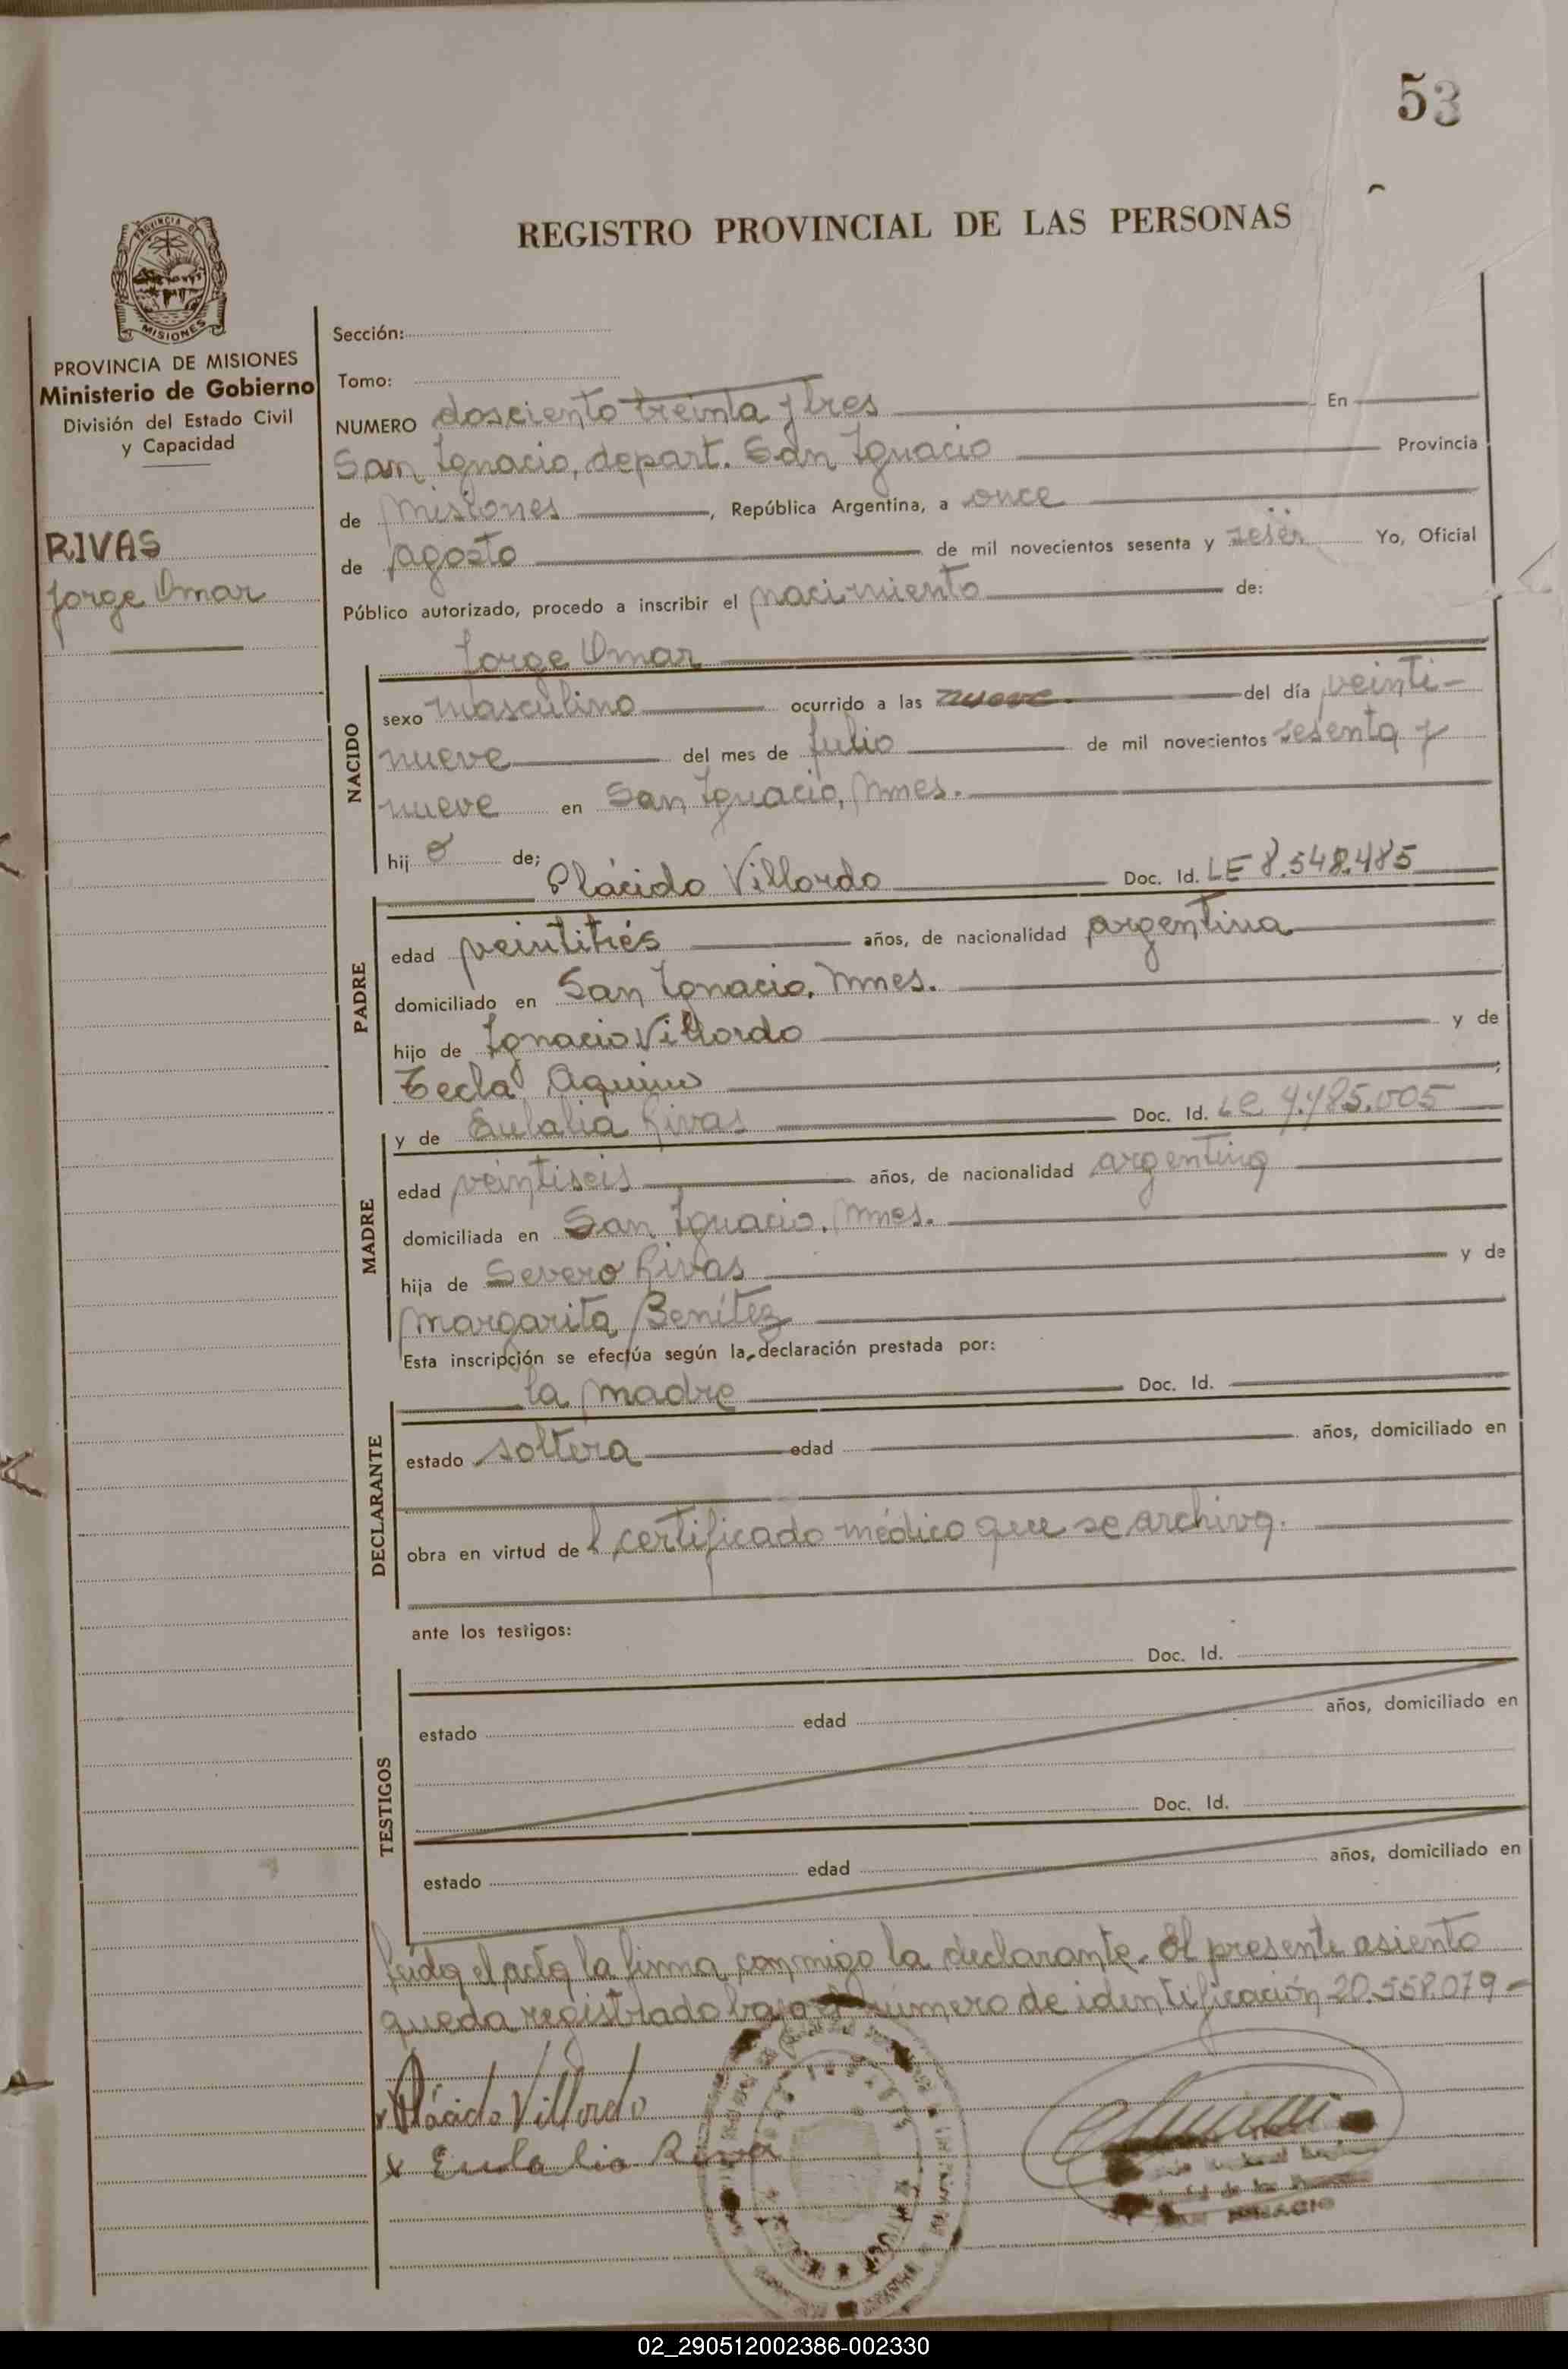 53
REGISTRO PROVINCIAL DE LAS PERSONAS
PROVINCIA
MISIONES
PROVINCIA DE MISIONES
Ministerio de Gobierno
División del Estado Civil
y Capacidad
RIVAS
Jorge Omar
Sección:
Tomo:
NUMERO dosciento treinta y tres En
San Ignacio, depart. San Ignacio Provincia
de Misiones, República Argentina, a once
de agosto de mil novecientos sesenta y Yo, Oficial
Público autorizado, procedo a inscribir el nacimiento de:
NACIDO
Jorge Omar
sexo masculino ocurrido a las nueve. del día veinti-
nueve del mes de julio de mil novecientos sesenta y
nueve en San Ignacio, Mnes.
hij o de;
PADRE
Plácido Villordo Doc. Id. LE 8.548.485
edad veintitrés años, de nacionalidad argentina
domiciliado en San Ignacio, Mnes.
hijo de Ignacio Villordo y de
Tecla Aquino ;
MADRE
y de Eulalia Rivas Doc. Id. LC 4.485.005
edad veintiseis años, de nacionalidad argentina
domiciliada en San Ignacio, Mnes.
hija de Severo Rivas y de
Margarita Benítez
Esta inscripción se efectúa según la declaración prestada por:
DECLARANTE
la madre Doc. Id.
estado soltera edad años, domiciliado en
obra en virtud de l certificado médico que se archiva.
ante los testigos:
TESTIGOS
Doc. Id.
estado edad años, domiciliado en
Doc. Id.
estado edad años, domiciliado en
Leída el acta la firma conmigo la declarante. El presente asiento
queda registrado bajo el número de identificación 20.558.079-
x Plácido Villordo
x Eulalia Rivas
IGNACIO
02_290512002386-002330